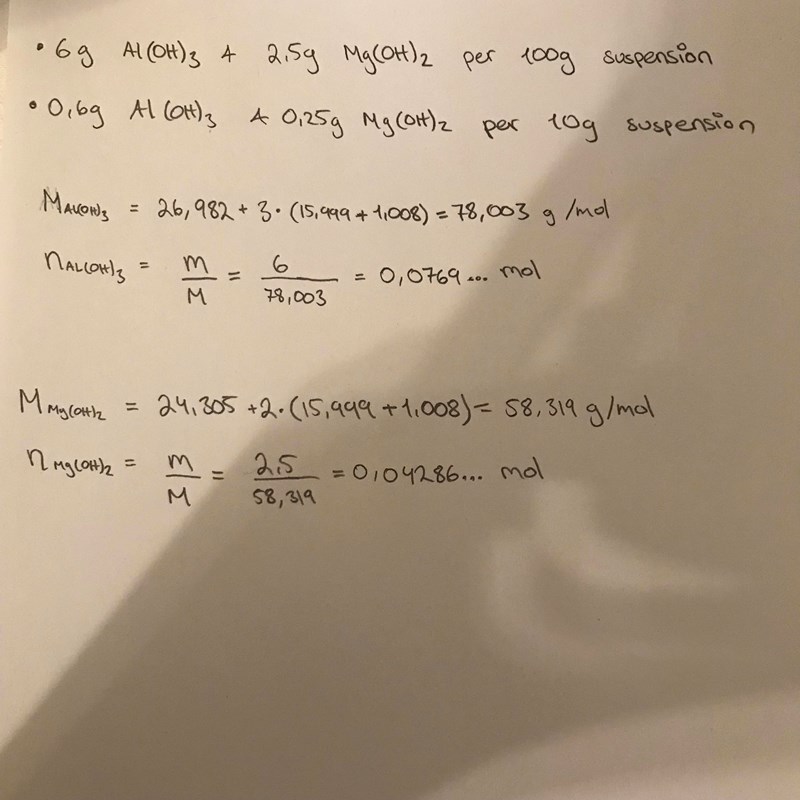 • 6g Al(OH)3 & 2,5g Mg(OH)2 per 100g suspension
• 0,6g Al(OH)3 & 0,25g Mg(OH)2 per 10g suspension
MAl(OH)3 = 26,982 + 3 · (15,999 + 1,008) = 78,003 g/mol
nAL(OH)3 = m/M = 6/78,003 = 0,0769... mol
MMg(OH)2 = 24,305 + 2 · (15,999 + 1,008) = 58,319 g/mol
nMg(OH)2 = m/M = 2,5/58,319 = 0,04286... mol